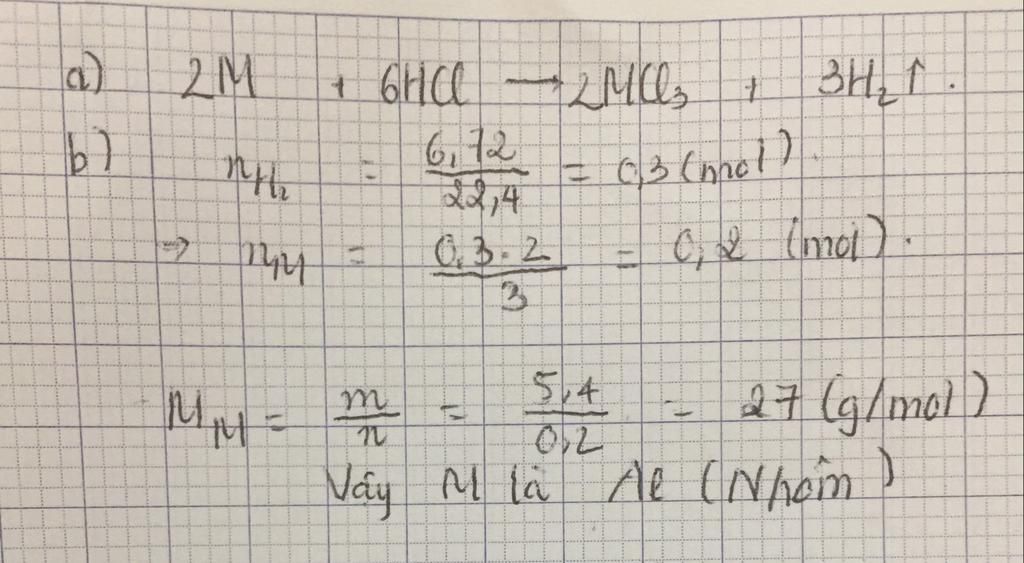 a) 2M + 6HCl → 2MCl₃ + 3H₂↑.
b) n_H₂ = 6,72/22,4 = 0,3 (mol).
⇒ n_M = 0,3.2/3 = 0,2 (mol).
M_M = m/n = 5,4/0,2 = 27 (g/mol)
Vậy M là Al (Nhôm)